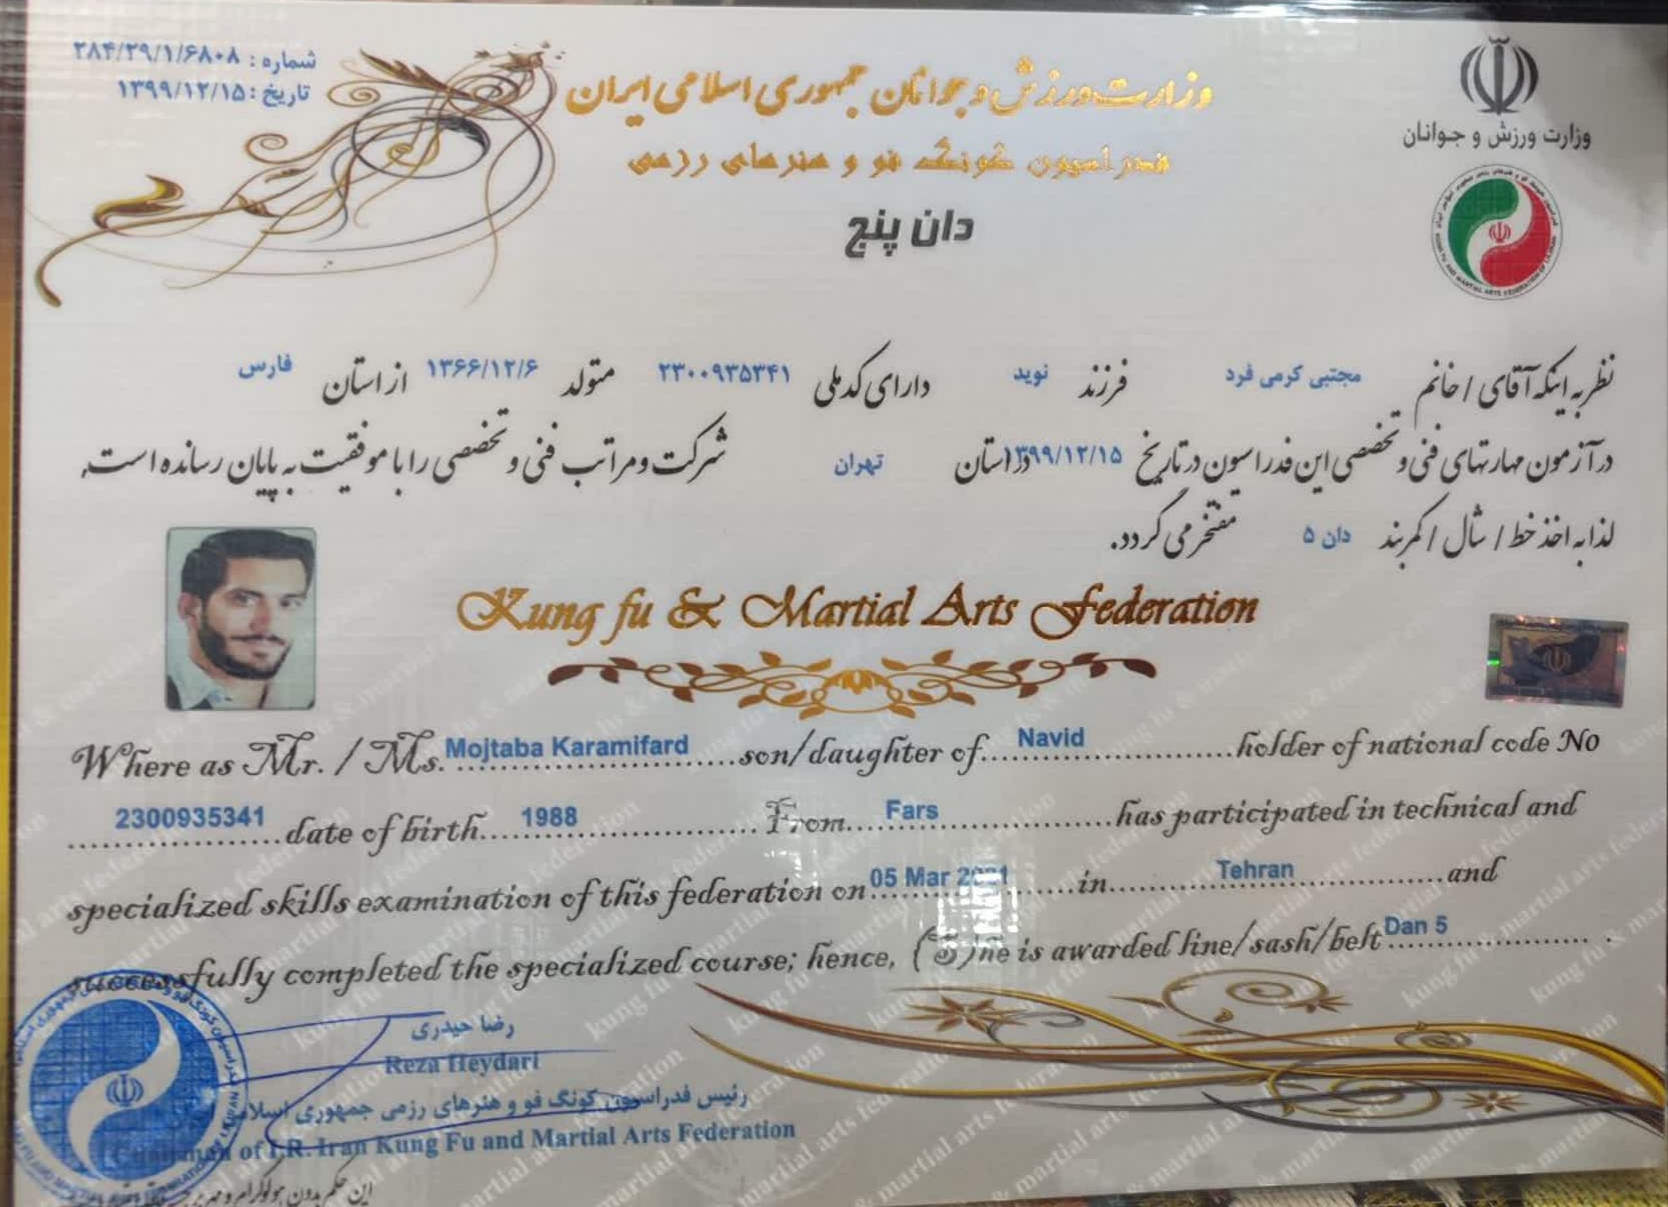 شماره : ۲۸۴/۲۹/۱/۶۸۰۸
تاریخ : ۱۳۹۹/۱۲/۱۵
وزارت ورزش و جوانان جمهوری اسلامی ایران
فدراسیون کونگ فو و هنرهای رزمی
دان پنج
وزارت ورزش و جوانان
نظر به اینکه آقای / خانم مجتبی کرمی فرد فرزند نوید دارای کد ملی ۲۳۰۰۹۳۵۳۴۱ متولد ۱۳۶۶/۱۲/۶ از استان فارس
در آزمون مهارتهای فنی و تخصصی این فدراسیون در تاریخ ۱۳۹۹/۱۲/۱۵ در استان تهران شرکت و مراتب فنی و تخصصی را با موفقیت به پایان رسانده است.
لذا به اخذ خط / شال / کمربند دان ۵ مفتخر می گردد.
Kung fu & Martial Arts Federation
Where as Mr. / Ms. Mojtaba Karamifard son/daughter of Navid holder of national code No
2300935341 date of birth 1988 From Fars has participated in technical and
specialized skills examination of this federation on 05 Mar 2021 in Tehran and
successfully completed the specialized course; hence, (S)he is awarded line/sash/belt Dan 5 .
رضا حیدری
Reza Heydari
رئیس فدراسیون کونگ فو و هنرهای رزمی جمهوری اسلامی
Chairman of I.R. Iran Kung Fu and Martial Arts Federation
این حکم بدون هولوگرام و مهر برجسته